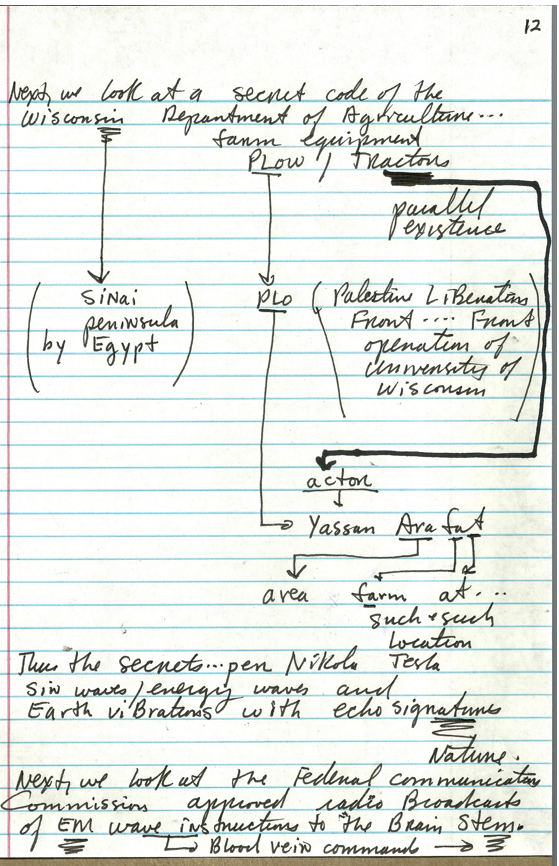 12
Next, we look at a secret code of the
Wisconsin Department of Agriculture...
farm equipment
PLOW / Tractors
parallel
existence
SiNai
peninsula
by Egypt
PLO (Palestine Liberation
Front .... Front
operation of
University of
Wisconsin
actor
Yassar Ara fat
area farm at...
such & such
location
Thus the secrets... per Nikola Tesla
Sin waves/energy waves and
Earth viBrations with echo signatures
Nature.
Next, we look at the Federal communication
Commission approved radio Broadcasts
of EM wave instructions to the Brain Stem.
Blood vein command